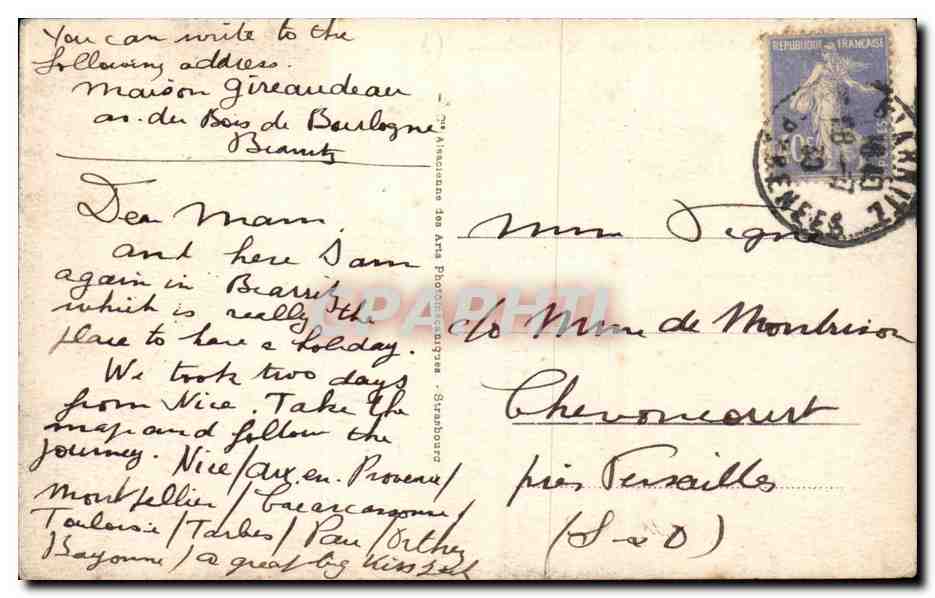 You can write to the
following address.
Maison Gireaudeau
av. du Bois de Boulogne
Biarritz
Dear Mam,
and here I am
again in Biarritz the
which is really the
place to have a holiday.
We took two days
from Nice. Take the
map and follow the
journey. Nice/Aix.en.Provence/
Montpellier/Carcarsonne/
Toulouse/Tarbes/Pau/Orthez
Bayonne/ a great big kiss
Cie Alsacienne des Arts Photomécaniques - Strasbourg
REPUBLIQUE FRANÇAISE
PYRENEES
Mme Vigne
c/o Mme de Montbrison
Chevoncourt
près Versailles
(S & O)
CPAPHIL